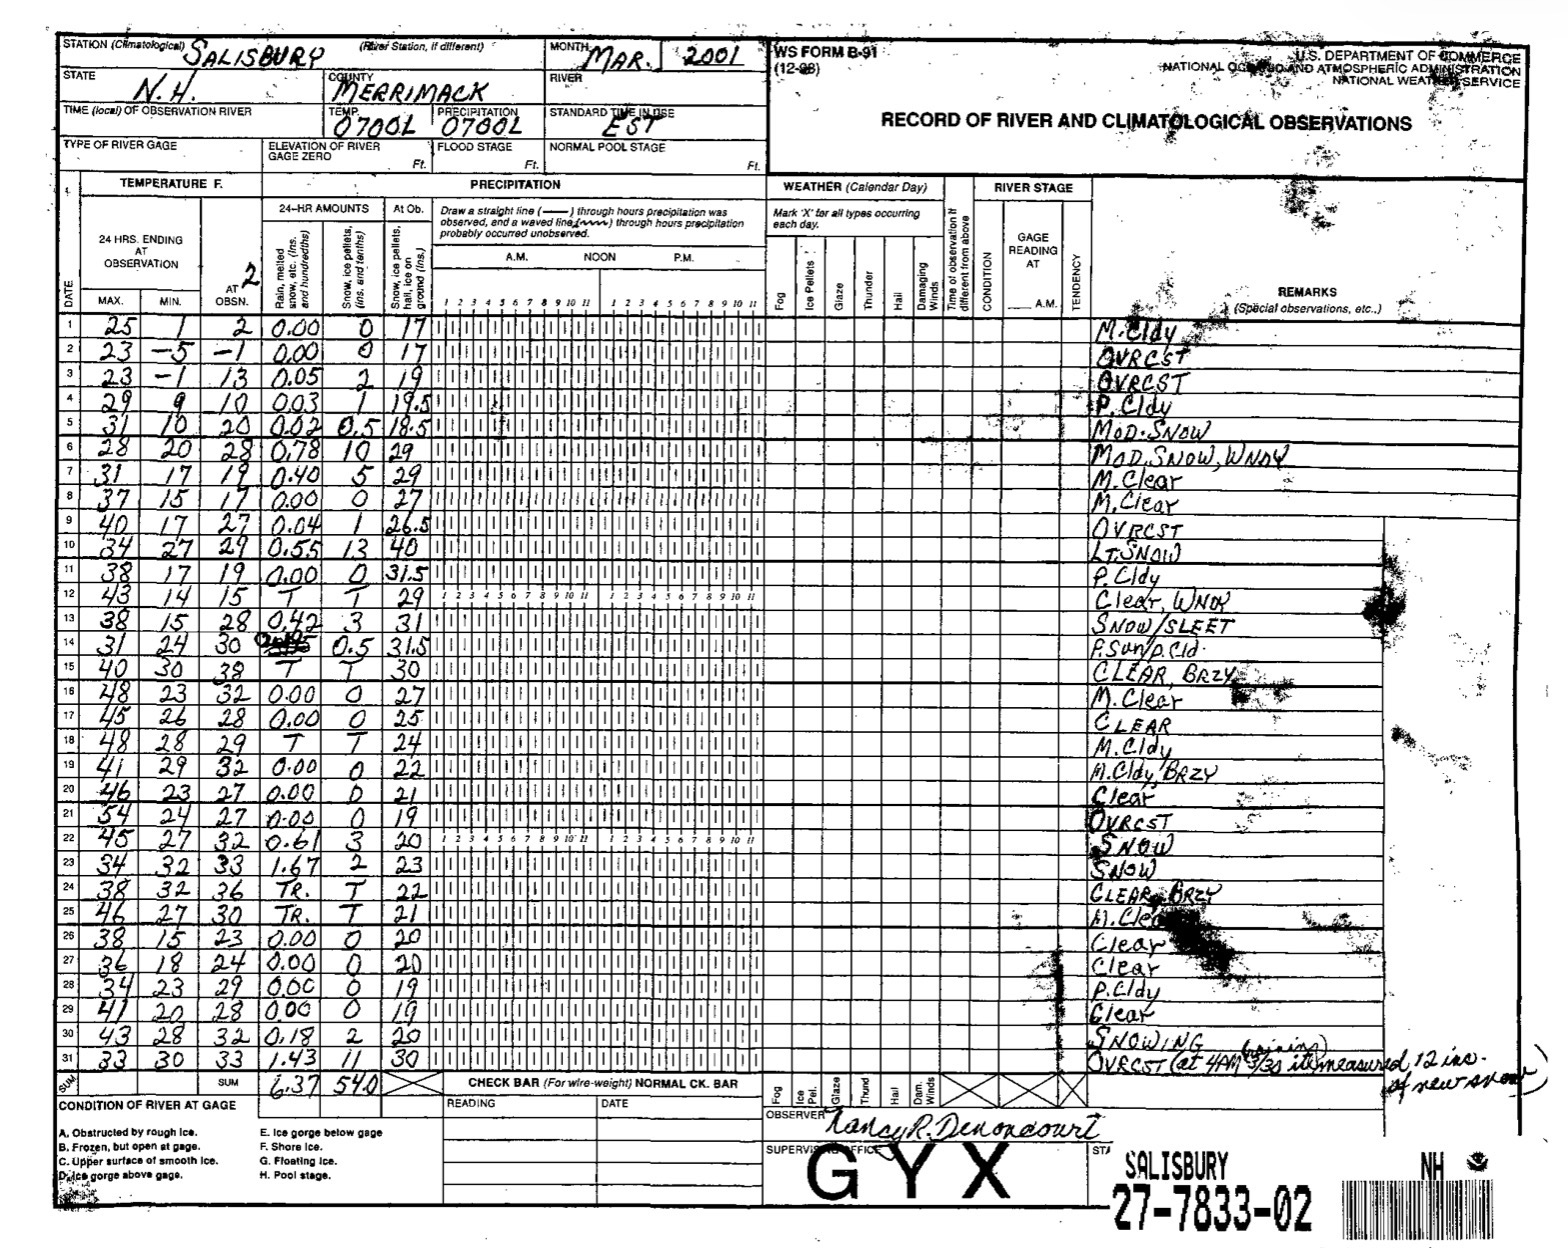 STATION (Climatological) SALISBURY (River Station, if different) MONTH MAR. 2001
WS FORM B-91
(12-98)
U.S. DEPARTMENT OF COMMERCE
NATIONAL OCEANIC AND ATMOSPHERIC ADMINISTRATION
NATIONAL WEATHER SERVICE
STATE N.H. COUNTY MERRIMACK RIVER
TIME (local) OF OBSERVATION RIVER TEMP. 0700L PRECIPITATION 0700L STANDARD TIME IN USE EST
RECORD OF RIVER AND CLIMATOLOGICAL OBSERVATIONS
TYPE OF RIVER GAGE ELEVATION OF RIVER GAGE ZERO Ft. FLOOD STAGE Ft. NORMAL POOL STAGE Ft.
TEMPERATURE F. PRECIPITATION WEATHER (Calendar Day) RIVER STAGE
24 HRS. ENDING AT OBSERVATION
AT OBSN. 2
24-HR AMOUNTS At Ob.
Rain, melted snow, etc. (Ins. and hundredths)
Snow, ice pellets, (ins. and tenths)
Snow, ice pellets, hail, ice on ground (Ins.)
Draw a straight line (——) through hours precipitation was observed, and a waved line (~~~) through hours precipitation probably occurred unobserved.
A.M. NOON P.M.
1 2 3 4 5 6 7 8 9 10 11 1 2 3 4 5 6 7 8 9 10 11
Mark 'X' for all types occurring each day.
Fog Ice Pellets Glaze Thunder Hail Damaging Winds
Time of observation if different from above
CONDITION GAGE READING AT A.M. TENDENCY
REMARKS
(Special observations, etc.,)
DATE MAX. MIN.
1 25 1 2 0.00 0 17 M. Cldy
2 23 -5 -1 0.00 0 17 OVRCST
3 23 -1 13 0.05 2 19 OVRCST
4 29 9 10 0.03 1 19.5 P. Cldy
5 31 10 20 0.02 0.5 18.5 MOD. SNOW
6 28 20 28 0.78 10 29 MOD. SNOW, WNDY
7 31 17 19 0.40 5 29 M. Clear
8 37 15 17 0.00 0 27 M. Clear
9 40 17 27 0.04 1 26.5 OVRCST
10 34 27 29 0.55 13 40 LT. SNOW
11 38 17 19 0.00 0 31.5 P. Cldy
12 43 14 15 T T 29 Clear, WNDY
13 38 15 28 0.42 3 31 SNOW/SLEET
14 31 24 30 0.5 31.5 P. Sun/P. Cld.
15 40 30 38 T T 30 CLEAR, BRZY
16 48 23 32 0.00 0 27 M. Clear
17 45 26 28 0.00 0 25 CLEAR
18 48 28 29 T T 24 M. Cldy
19 41 29 32 0.00 0 22 M. Cldy, BRZY
20 46 23 27 0.00 0 21 Clear
21 54 24 27 0.00 0 19 OVRCST
22 45 27 32 0.61 3 20 SNOW
23 34 32 33 1.67 2 23 SNOW
24 38 32 36 TR. T 22 CLEAR, BRZY
25 46 27 30 TR. T 21 M. Clear
26 38 15 23 0.00 0 20 Clear
27 36 18 24 0.00 0 20 Clear
28 34 23 29 0.00 0 19 P. Cldy
29 41 20 28 0.00 0 19 Clear
30 43 28 32 0.18 2 20 SNOWING
31 33 30 33 1.43 11 30 OVRCST (at 4AM 3/30 it measured 12 ins. of new snow)
SUM SUM 6.37 54.0 CHECK BAR (For wire-weight) NORMAL CK. BAR
Fog Ice Pel. Glaze Thund Hail Dam. Winds
CONDITION OF RIVER AT GAGE READING DATE
OBSERVER Nancy R. Denoncourt
A. Obstructed by rough ice. E. Ice gorge below gage
B. Frozen, but open at gage. F. Shore ice.
C. Upper surface of smooth ice. G. Floating ice.
D. Ice gorge above gage. H. Pool stage.
SUPERVISING OFFICE GYX
SALISBURY NH
27-7833-02